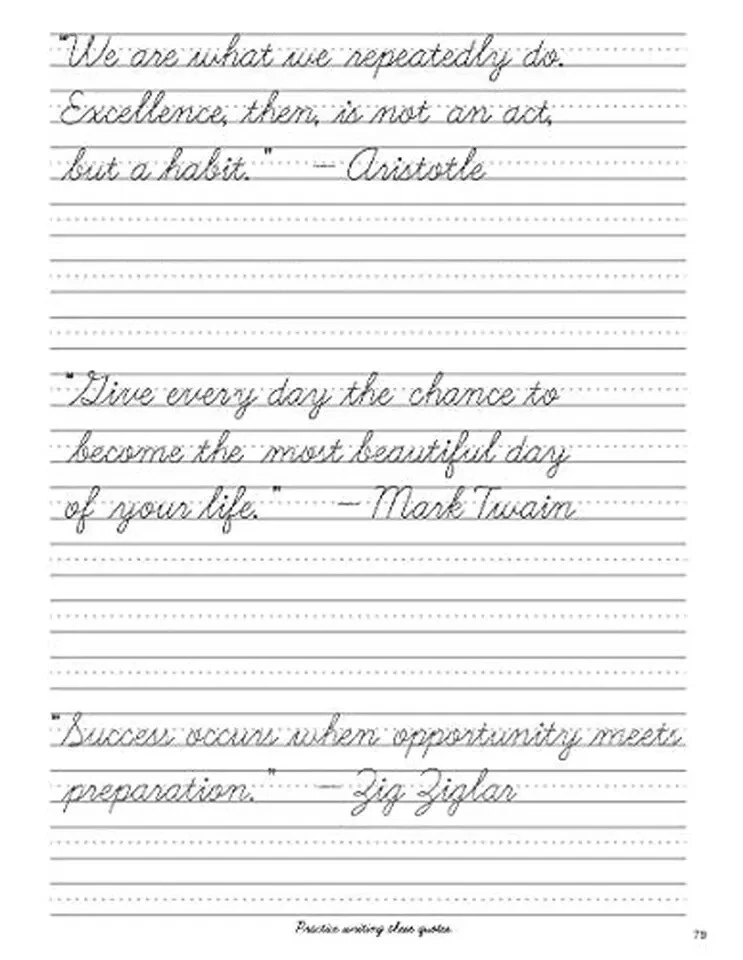 "We are what we repeatedly do.
Excellence, then, is not an act,
but a habit." — Aristotle
"Give every day the chance to
become the most beautiful day
of your life." — Mark Twain
"Success occurs when opportunity meets
preparation." — Zig Ziglar
Practice writing these quotes.
79